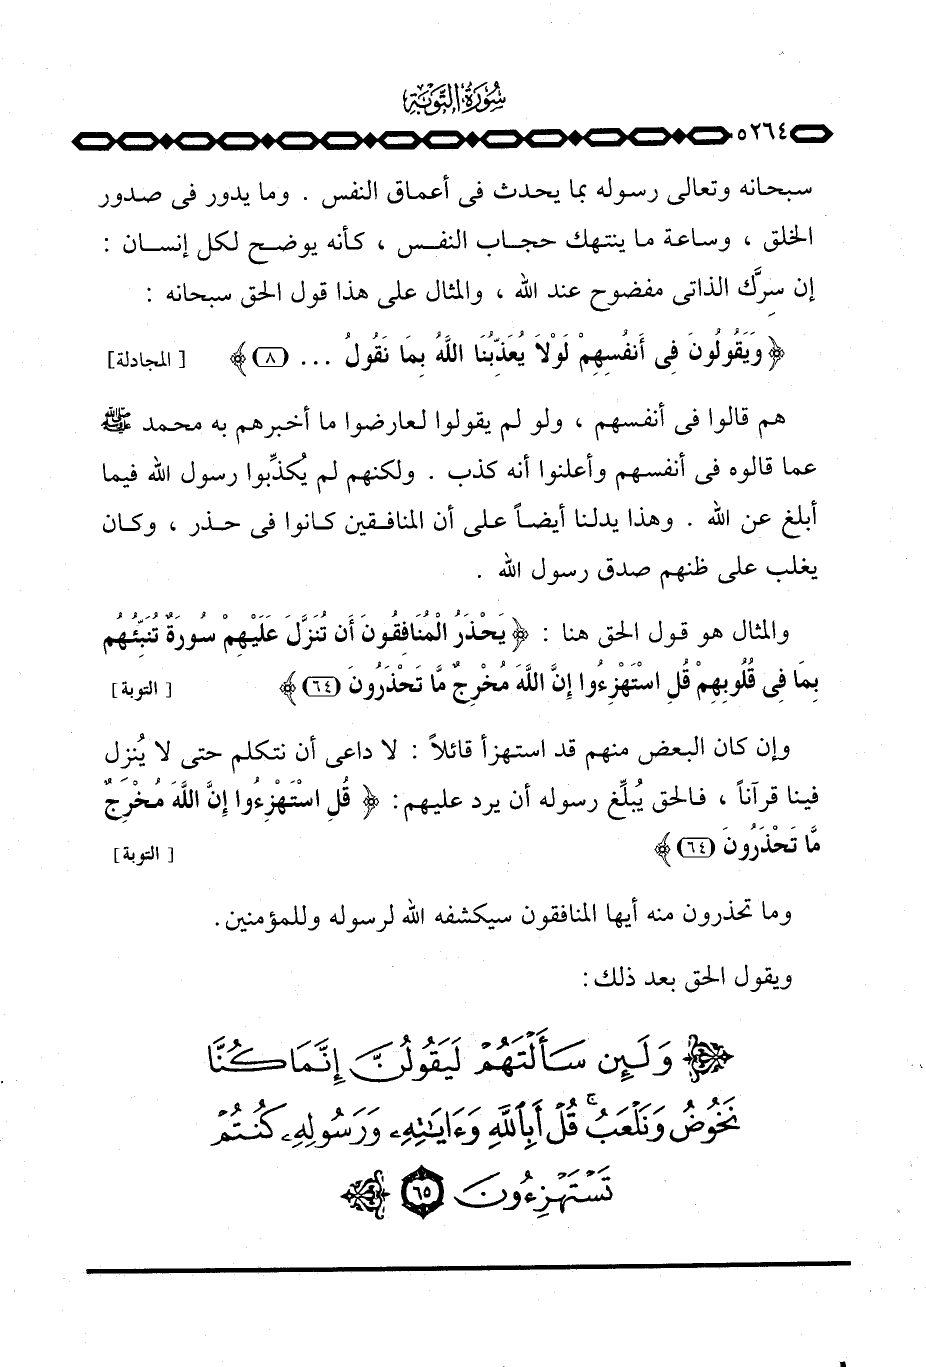 سُورَةُ التَّوْبَة
٥٢٦٤
سبحانه وتعالى رسوله بما يحدث فى أعماق النفس . وما يدور فى صدور
الخلق ، وساعة ما ينتهك حجاب النفس ، كأنه يوضح لكل إنسان :
إن سرَّك الذاتى مفضوح عند الله ، والمثال على هذا قول الحق سبحانه :
﴿ وَيَقُولُونَ فِى أَنفُسِهِمْ لَوْلاَ يُعَذِّبُنَا اللَّهُ بِمَا نَقُولُ ... (٨) ﴾ [ المجادلة ]
هم قالوا فى أنفسهم ، ولو لم يقولوا لعارضوا ما أخبرهم به محمد ﷺ
عما قالوه فى أنفسهم وأعلنوا أنه كذب . ولكنهم لم يُكذِّبوا رسول الله فيما
أبلغ عن الله . وهذا يدلنا أيضاً على أن المنافقين كانوا فى حذر ، وكان
يغلب على ظنهم صدق رسول الله .
والمثال هو قول الحق هنا : ﴿ يَحْذَرُ الْمُنَافِقُونَ أَن تُنَزَّلَ عَلَيْهِمْ سُورَةٌ تُنَبِّئُهُم
بِمَا فِى قُلُوبِهِمْ قُلِ اسْتَهْزِءُوا إِنَّ اللَّهَ مُخْرِجٌ مَّا تَحْذَرُونَ (٦٤) ﴾ [ التوبة ]
وإن كان البعض منهم قد استهزأ قائلاً : لا داعى أن نتكلم حتى لا يُنزل
فينا قرآناً ، فالحق يُبلِّغ رسوله أن يرد عليهم: ﴿ قُلِ اسْتَهْزِءُوا إِنَّ اللَّهَ مُخْرِجٌ
مَّا تَحْذَرُونَ (٦٤) ﴾ [ التوبة ]
وما تحذرون منه أيها المنافقون سيكشفه الله لرسوله وللمؤمنين.
ويقول الحق بعد ذلك:
﴿ وَلَئِن سَأَلْتَهُمْ لَيَقُولُنَّ إِنَّمَا كُنَّا
نَخُوضُ وَنَلْعَبُ ۚ قُلْ أَبِٱللَّهِ وَءَايَٰتِهِۦ وَرَسُولِهِۦ كُنتُمْ
تَسْتَهْزِءُونَ ٦٥ ﴾